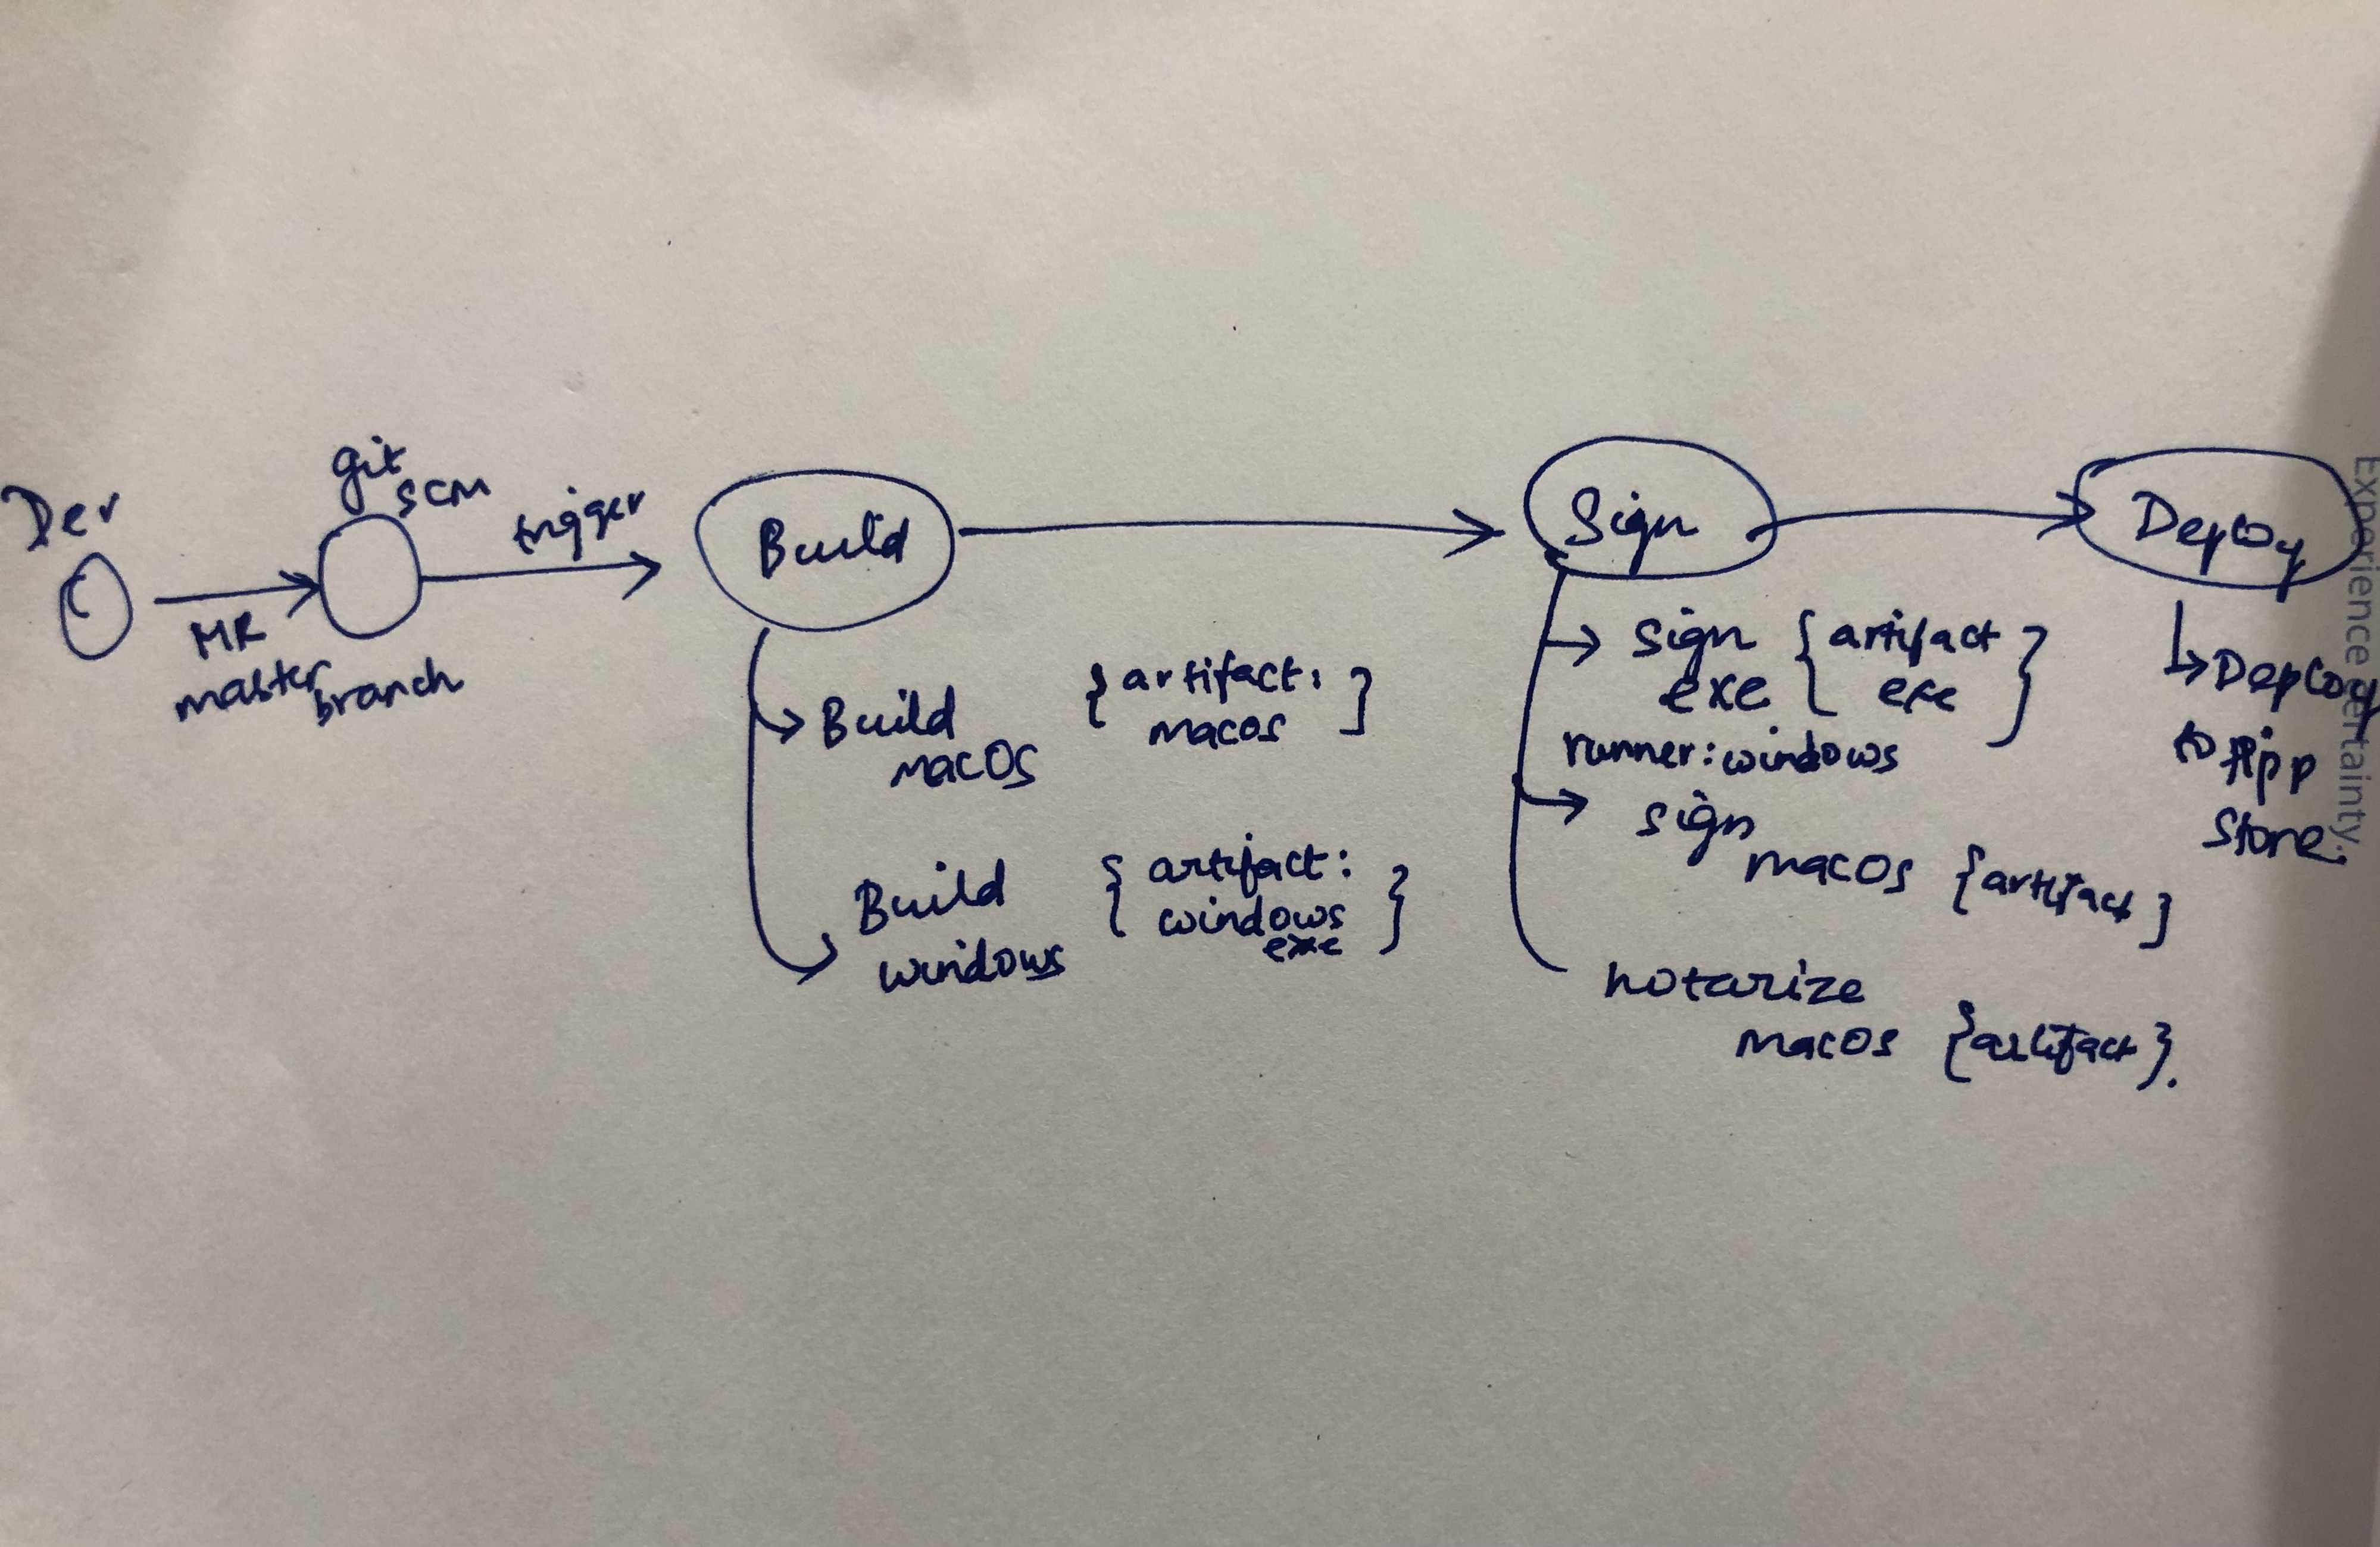 Dev
git
scm
trigger
MR
master
branch
Build
Build
macOS
{ artifact:
macos }
Build
windows
{ artifact:
windows
exe }
Sign
Sign
exe
{ artifact
exe }
runner: windows
sign
macOS {artifact}
notarize
macOS {artifact}.
Deploy
Deploy
to App
Store.
Experience certainty.